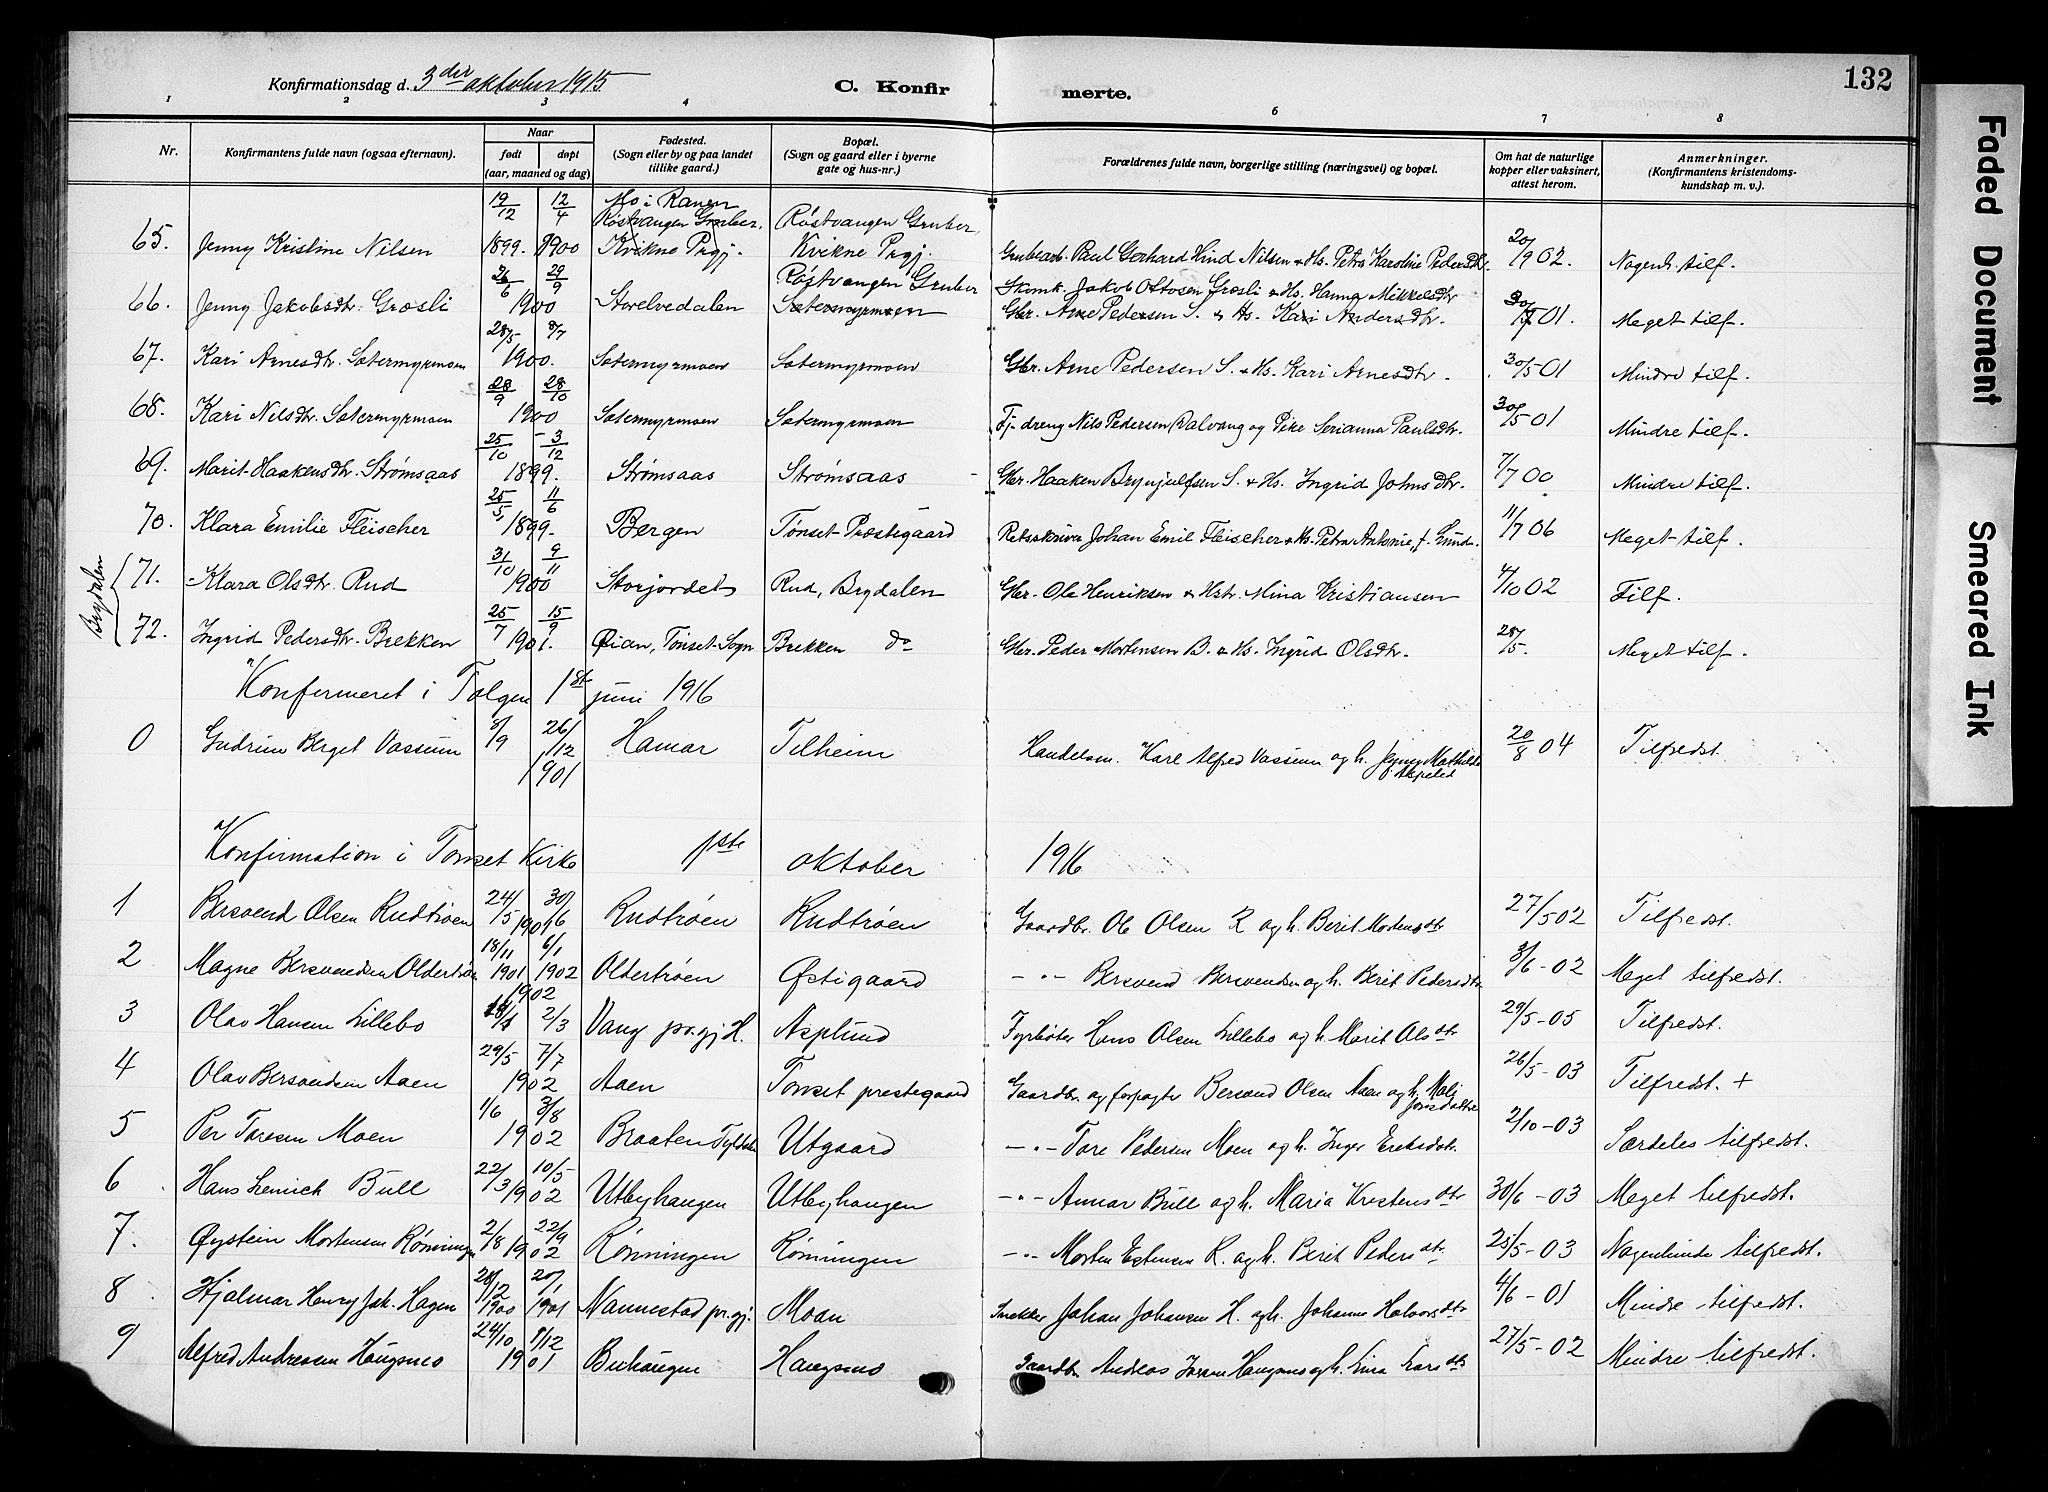 132
Konfirmationsdag d. 3die oktober 1915
C. Konfirmerte.
1 2 3 4 5 6 7 8
Nr.
Konfirmantens fulde navn (ogsaa efternavn).
Naar
født døpt
(aar, maaned og dag)
Fødested.
(Sogn eller by og paa landet
tillike gaard.)
Bopæl.
(Sogn og gaard eller i byerne
gate og hus-nr.)
Forældrenes fulde navn, borgerlige stilling (næringsvei) og bopæl.
Om hat de naturlige
kopper eller vaksinert,
attest herom.
Anmerkninger.
(Konfirmantens kristendoms-
kundskap m. v.).
19/12 12/4 Mo i Ranen
Røstvangen Gruber, Røstvangen Gruber,
65. Jenny Kristine Nilsen 1899. 1900 Kvikne Prgj. Kvikne Prgj. Grubearb. Paul Gerhard Hind Nilsen & Hs. Petra Karoline Pedersdtr. 20/9 02. Nogenl. tilf.
26/6 29/9 Røstvangen Gruber Skomk. Jakob Olsen Græsli & Hs. Hanna Mikkelsdtr
66. Jenny Jakobsdtr. Græsli 1900 Storelvedalen Sætermyrmoen Gbr. Arne Pedersen S. & Hs. Kari Andersdtr. 01. Meget tilf.
28/5 8/7
67. Kari Arnesdtr. Sætermyrmoen 1900. Sætermyrmoen Sætermyrmoen Gbr. Arne Pedersen S. & Hs. Kari Arnesdtr. 30/5 01 Mindre tilf.
28/9 28/10
68. Kari Nilsdtr. Sætermyrmoen 1900 Sætermyrmoen Sætermyrmoen Tj. dreng Nils Pedersen Dalvang og Pike Serianna Paulsdtr. 30/5 01 Mindre tilf.
25/10 3/12
69. Marit Haakensdtr. Strømsaas 1899. Strømsaas Strømsaas Gbr. Haaken Brynjulfsen S. & Hs. Ingrid Johnsdtr. 7/7 00 Mindre tilf.
25/5 11/6
70. Klara Emilie Fleischer 1899. Bergen Tønset Præstegaard Retsskriver Johan Emil Fleischer & Hs. Petra Antonie, f. Lund. 11/7 06 Meget tilf.
Brydalen
31/10 9/11
71. Klara Olsdtr. Rud 1900 Storjordet Rud, Brydalen Gbr. Ole Henriksen & Hstr. Mina Kristiansen 4/10 02 Tilf.
25/7 15/9
72. Ingrid Pedersdtr. Brekken 1901. Øian, Tønset Sogn Brekken do Gbr. Peder Mortensen B. & Hs. Ingrid Olsdtr. 28/5. Meget tilf.
Konfirmeret i Tolgen 1ste juni 1916
0 Gudrun Berget Vassum 8/9 26/12 1901 Hamar Telheim Handelsm. Karl Alfred Vassum og h. Jenny Mathilde 20/8 04 Tilfredst.
Konfirmation i Tønset Kirke 1ste oktober 1916
1 Bersvend Olsen Rudtrøen 24/5 1901 30/6 Rudtrøen Rudtrøen Gaardbr. Ole Olsen R og h. Berit Mortensdtr 27/5 02 Tilfredst.
2 Magne Bersvendsen Oldertrøen 18/11 1901 6/1 1902 Oldertrøen Østigaard -"- Bersvend Bersvendsen og h. Berit Pedersdtr 3/6 - 02 Meget tilfredst.
3 Olav Hansen Lillebo 1902 2/3 Vang pr.gj H. Asplund Fyrbøter Hans Olsen Lillebo og h. Marit Olsdtr 29/5 - 05 Tilfredst.
4 Olav Bersvendsen Aaen 29/5 7/7 1902 Aaen Tønset prestegaard Gaardbr. og forpagter Bersvend Olsen Aaen og h. Mali Jonsdatter 26/5 - 03 Tilfredst. +
5 Per Toresen Moen 1/6 3/8 1902 Braaten Tyldalen Utgaard -"- Tore Pedersen Moen og h. Inger Eriksdtr. 2/10 - 03 Særdeles tilfredst.
6 Hans Lemich Bull 22/3 10/5 1902 Utbyhaugen Utbyhaugen -"- Annar Bull og h. Maria Krestensdtr 30/6 - 03 Meget tilfredst.
7. Øystein Mortensen Rønningen 2/8 22/9 1902 Rønningen Rønningen -"- Morten Estensen R. og h. Berit Pedersdtr 25/5 - 03 Nogenlunde tilfredst.
8 Hjalmar Henry Joh. Hagen 28/12 1900 20/1 1901 Nannestad pr.gj. Moan Snekker Johan Johansen H. og h. Johanne Halvorsdtr 4/6 - 01 Mindre tilfredst.
9 Alfred Andreasen Haugsmo 24/10 8/12 1901 Buhaugen Haugsmo Gaardbr. Andreas Haugsmo og h. Lina Larsdtr 27/5 - 02 Mindre tilfredst.
Faded Document
Smeared Ink